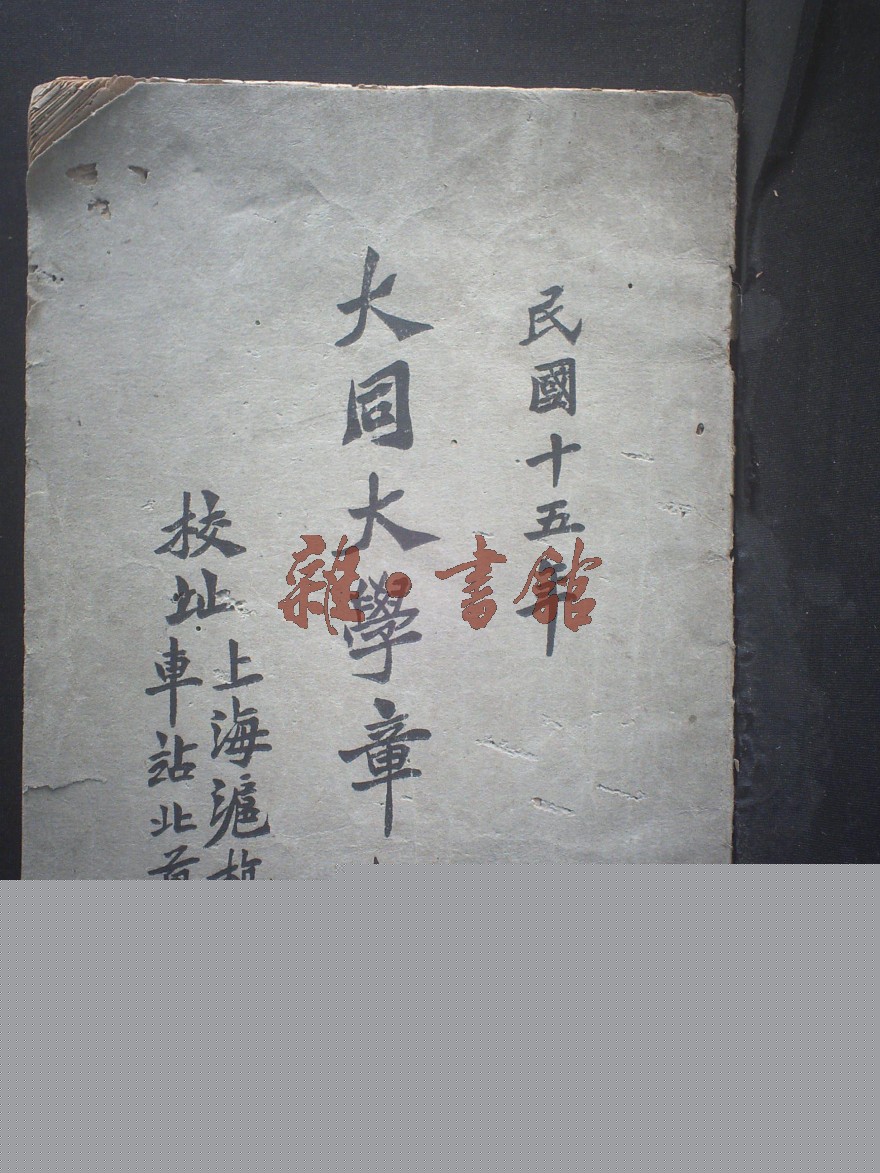 民國十五年
大同大學章
校址
上海滬
車站北
雜·書館